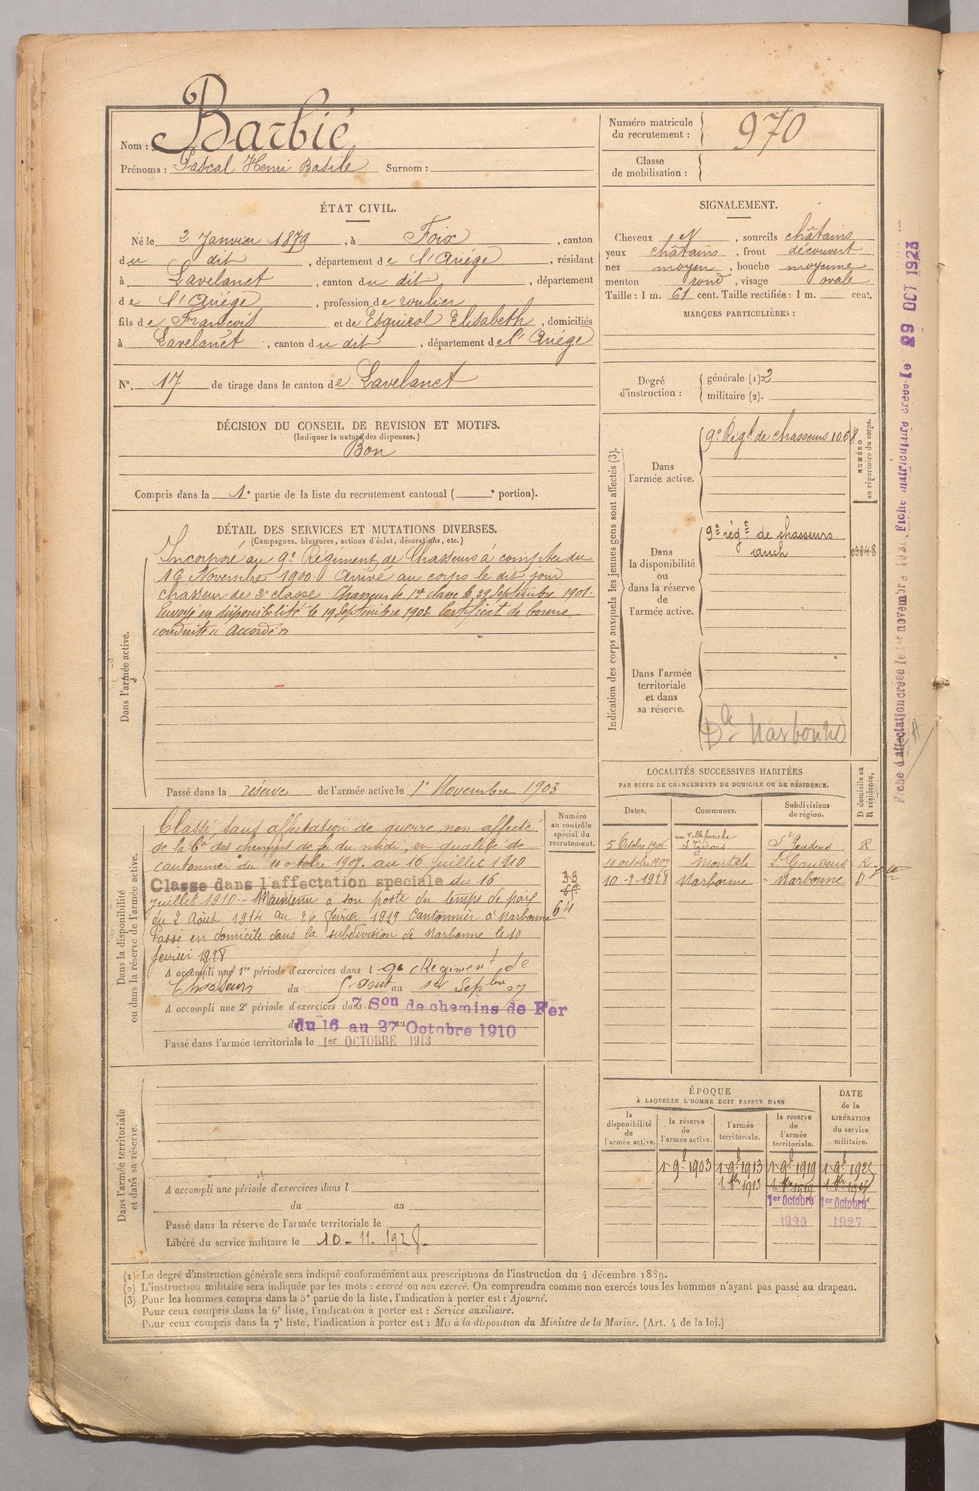 Nom : Barbié
Prénoms : Pascal Henri Basile Surnom :
Numéro matricule du recrutement : 970
Classe de mobilisation :
ÉTAT CIVIL.
Né le 2 Janvier 1879, à Foix, canton
du dit, département de l'Ariège, résidant
à Lavelanet, canton du dit, département
de l'Ariège, profession de roulier
fils de François et de Esquirol Elisabeth, domiciliés
à Lavelanet, canton du dit, département de l'Ariège
N° 17 de tirage dans le canton de Lavelanet
SIGNALEMENT.
Cheveux , sourcils châtains
yeux châtains, front découvert
nez moyen, bouche moyenne
menton rond, visage ovale
Taille : 1 m. 61 cent. Taille rectifiée : 1 m. cent.
MARQUES PARTICULIÈRES :
Degré d'instruction : générale (1) 2
militaire (2).
DÉCISION DU CONSEIL DE REVISION ET MOTIFS.
(Indiquer la nature des dispenses.)
Bon
Compris dans la 1e partie de la liste du recrutement cantonal ( e portion).
DÉTAIL DES SERVICES ET MUTATIONS DIVERSES.
(Campagnes, blessures, actions d'éclat, décorations, etc.)
Dans l'armée active.
Incorporé au 9e Régiment de Chasseurs à compter du
16 Novembre 1900 Arrivé au corps le dit jour
chasseur de 2e classe Chasseur de 1re classe le 29 Septembre 1901.
Envoyé en disponibilité le 19 Septembre 1903. Certificat de bonne
conduite Accordé
Passé dans la réserve de l'armée active le 1er Novembre 1903
Indication des corps auxquels les jeunes gens sont affectés (3).
NUMÉRO au répertoire du corps.
Dans l'armée active.
9e Régt de chasseurs
Dans la disponibilité ou dans la réserve de l'armée active.
9e régt de chasseurs
auch
03848
Dans l'armée territoriale et dans sa réserve.
Narbonne
Dans la disponibilité ou dans la réserve de l'armée active.
Numéro au contrôle spécial du recrutement.
Classé, sans affectation de guerre, non affecté
de la Cie des chemins de fer du midi, en qualité de
cantonnier du 10 octobre 1907 au 16 juillet 1910
Classé dans l'affectation spéciale du 16
juillet 1910 - Maintenu à son poste du temps de paix
du 2 Août 1914 au 26 février 1919 Cantonnier à Narbonne
Passé en domicile dans la subdivision de Narbonne le 10
février 1928
39
64
A accompli une 1re période d'exercices dans l 9e Régiment de
Chasseurs du au
A accompli une 2e période d'exercices dans 7 Son de chemins de Fer
du 16 au 27 Octobre 1910
Passé dans l'armée territoriale le 1er OCTOBRE 1913
LOCALITÉS SUCCESSIVES HABITÉES
PAR SUITE DE CHANGEMENTS DE DOMICILE OU DE RÉSIDENCE.
Dates. Communes. Subdivisions de région. D domicile ou R résidence.
5 Octobre 1906 St Girons St Gaudens R
10 octobre 1907 St Gaudens R
10-2-1928 Narbonne Narbonne D
Dans l'armée territoriale et dans sa réserve.
A accompli une période d'exercices dans l
du au
Passé dans la réserve de l'armée territoriale le
Libéré du service militaire le 10-11-1928-
ÉPOQUE
À LAQUELLE L'HOMME DOIT PASSER DANS
DATE de la LIBÉRATION du service militaire.
la disponibilité de l'armée active. la réserve de l'armée active. l'armée territoriale. la réserve de l'armée territoriale.
1903 1913 1919 1925
1er Octobre 1er Octobre
1920 1927
(1) Le degré d'instruction générale sera indiqué conformément aux prescriptions de l'instruction du 4 décembre 1889.
(2) L'instruction militaire sera indiquée par les mots : exercé ou non exercé. On comprendra comme non exercés tous les hommes n'ayant pas passé au drapeau.
(3) Pour les hommes compris dans la 5e partie de la liste, l'indication à porter est : Ajourné.
Pour ceux compris dans la 6e liste, l'indication à porter est : Service auxiliaire.
Pour ceux compris dans la 7e liste, l'indication à porter est : Mis à la disposition du Ministre de la Marine. (Art. 4 de la loi.)
Fiche d'affectation créée le 1er novembre Fiche matriculaire créée le 29 OCT 1923